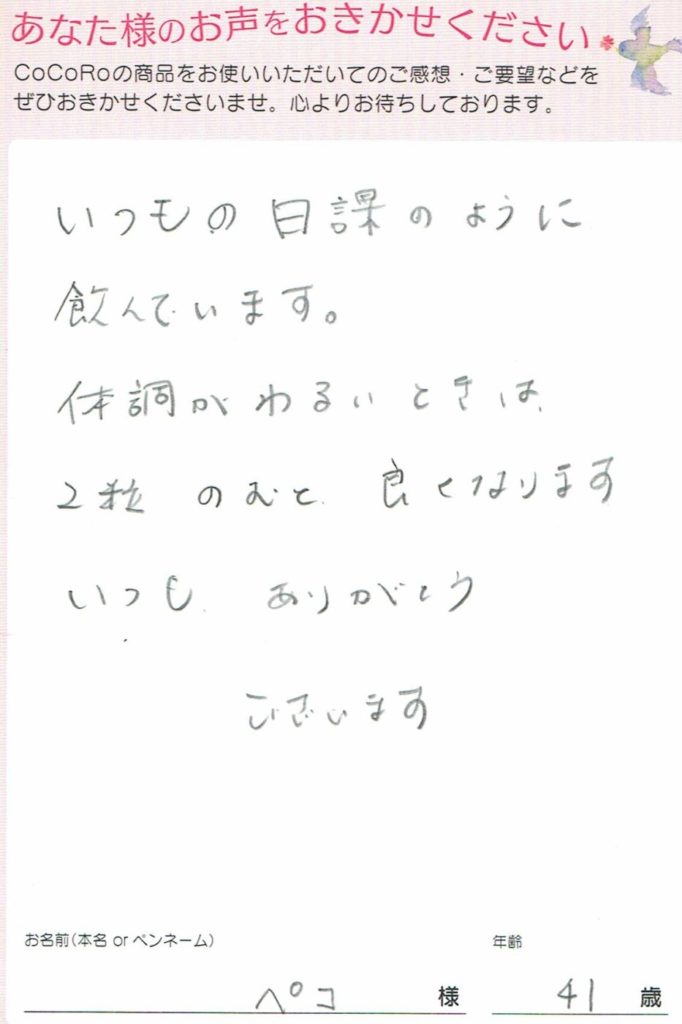 あなた様のお声をおきかせください
CoCoRoの商品をお使いいただいてのご感想・ご要望などを
ぜひおきかせくださいませ。心よりお待ちしております。
いつもの日課のように
飲んでいます。
体調がわるいときは、
2粒 のむと、良くなります
いつも、ありがとう
ございます
お名前(本名 or ペンネーム)
年齢
ペコ 様
41 歳